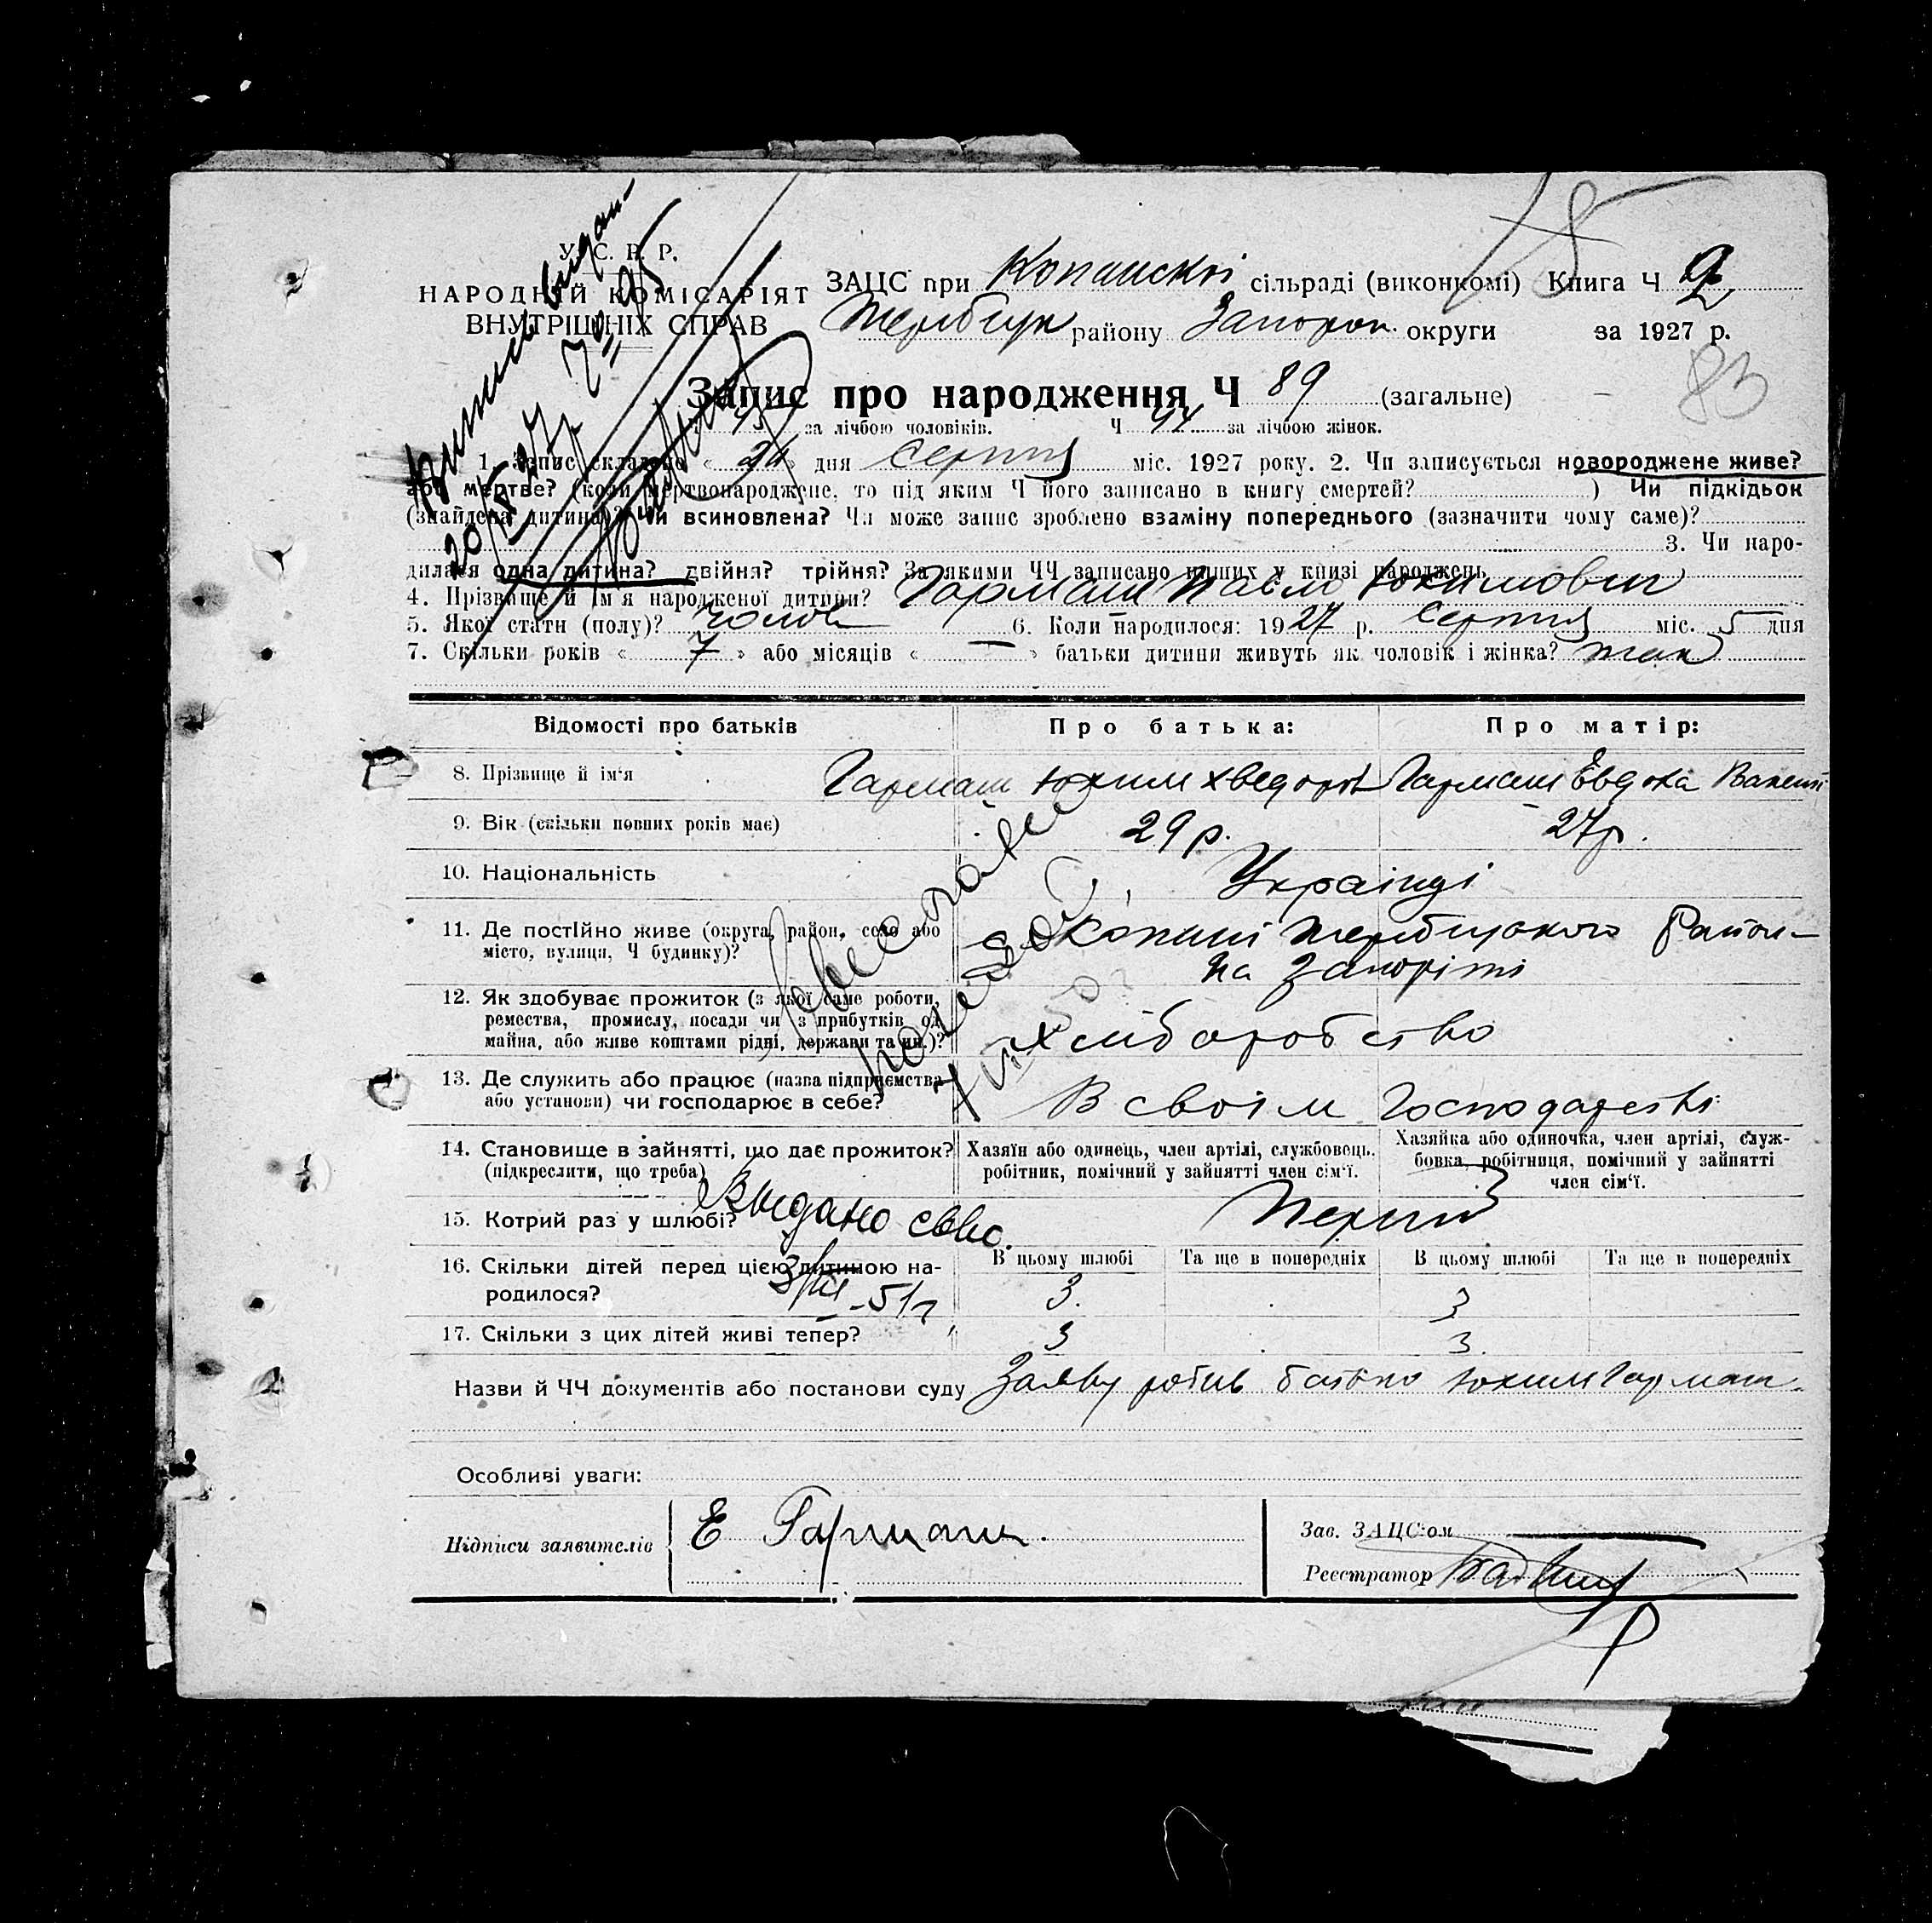 У. С. Р. Р.
НАРОДНІЙ КОМІСАРІЯТ
ВНУТРІШНІХ СПРАВ
ЗАЦС при Копанскій сільраді (виконкомі) Книга Ч 2
Жеребцук району Запорож. округи за 1927 р.
78
83
Запис про народження Ч 89 (загальне)
45 за лічбою чоловіків. Ч 44 за лічбою жінок.
1. Запис складено « 24 » дня Серпня міс. 1927 року. 2. Чи записується новороджене живе?
або мертве? (коли мертвонароджене, то під яким Ч його записано в книгу смертей? ) Чи підкідьок
(знайдена дитина)? Чи всиновлена? Чи може запис зроблено взаміну попереднього (зазначити чому саме)?
3. Чи наро-
дилася одна дитина? двійня? трійня? За якими ЧЧ записано инших у книзі народжень
4. Прізвище й ім'я народженої дитини? Гармаш Павло Юхимович
5. Якої стати (полу)? Чолов 6. Коли народилося: 1927 р. Серпня міс. 5 дня
7. Скільки років « 7 » або місяців « — » батьки дитини живуть як чоловік і жінка? так
Відомості про батьків Про батька: Про матір:
8. Прізвище й ім'я Гармаш Юхим Хведоров Гармаш Євдока
9. Вік (скільки повних років має) 29 р. 27 р.
10. Національність Українці
11. Де постійно живе (округа, район, село або
місто, вулиця, Ч будинку)? с Копані Жеребцького Район-
на Запоріжі
12. Як здобуває прожиток (з якої саме роботи,
ремества, промислу, посади чи з прибутків од
майна, або живе коштами рідні, держави та ин.)? Хліборобство
13. Де служить або працює (назва підприємства
або установи) чи господарює в себе? В своїм Господарстві
14. Становище в зайнятті, що дає прожиток?
(підкреслити, що треба)
Хазяїн або одинець, член артілі, службовець,
робітник, помічний у зайнятті член сім'ї.
Хазяйка або одиночка, член артілі, служ-
бовка, робітниця, помічний у зайнятті
член сім'ї.
Выдано св-во.
3/III-51 г
15. Котрий раз у шлюбі? Перший
16. Скільки дітей перед цією дитиною на-
родилося?
В цьому шлюбі Та ще в попередніх В цьому шлюбі Та ще в попередніх
3. 3
17. Скільки з цих дітей живі тепер? 3 3.
Назви й ЧЧ документів або постанови суду Заяву робив батько Юхим Гармаш
Особливі уваги:
Підписи заявителів Е Гармаш.
Зав. ЗАЦС'ом
Реєстратор